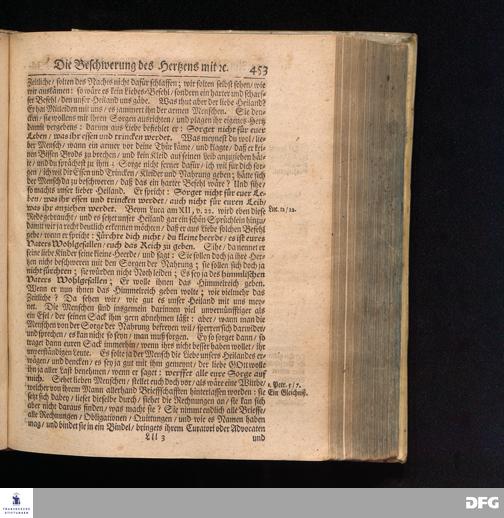 Die Beschwerung des Hertzens mit ꝛc. 453
Zeitliche / solten des Naches nicht dafür schlaffen; wir solten selbst sehen / wie
wir auskämen: so wäre es kein Liebes-Befehl / sondern ein harter und scharf-
fer Befehl / den unser Heiland uns gäbe. Was thut aber der liebe Heiland?
Er hat Mitleiden mit uns / es jammert ihn der armen Menschen. Sie den-
cken / sie wollens mit ihren Sorgen ausrichten / und plagen ihr eigenes Hertz
damit vergebens: darum aus Liebe befiehlet er: Sorget nicht für euer
Leben / was ihr essen und trincken werdet. Was meynest du wol / lie-
ber Mensch / wann ein armer vor deine Thür käme / und klagte / daß er kei-
nen Bissen Brods zu brechen / und kein Kleid auf seinen Leib anzuziehen hät-
te / und du sprächest zu ihm: Sorge nicht ferner dafür / ich wil für dich sor-
gen / ich wil dir Essen und Trincken / Kleider und Nahrung geben; hätte sich
der Mensch da zu beschweren / daß das ein harter Befehl wäre? Und sihe /
so machts unser lieber Heiland. Er spricht: Sorget nicht für euer Le-
ben / was ihr essen und trincken werdet / auch nicht für euren Leib /
was ihr anziehen werdet. Beym Luca am XII, v. 22. wird eben diese
Luc. 12 / 22.
Rede gebraucht / und es setzet unser Heiland gar ein schön Sprüchlein hinzu /
damit wir ja recht deutlich erkennen möchten / daß er aus Liebe solchen Befehl
gebe / wenn er spricht: Fürchte dich nicht / du kleine heerde / es ist eures
Vaters Wohlgefallen / euch das Reich zu geben. Sihe / da nennet er
seine liebe Kinder seine kleine Heerde / und sagt: Sie sollen doch ja ihre Her-
tzen nicht beschweren mit den Sorgen der Nahrung; sie sollen sich doch ja
nicht fürchten; sie würden nicht Noth leiden; Es sey ja des himmlischen
Vaters Wohlgefallen; Er wolle ihnen das Himmelreich geben.
Wenn er nun ihnen das Himmelreich geben wolte; wie vielmehr das
Zeitliche? Da sehen wir / wie gut es unser Heiland mit uns mey-
net. Die Menschen sind insgemein darinnen viel unvernünfftiger als
ein Esel / der seinen Sack ihm gern abnehmen läßt: aber / wann man die
Menschen von der Sorge der Nahrung befreyen wil / sperren sich darwider /
und sprechen / es kan nicht so seyn / man muß sorgen. Ey so sorget dann / so
traget dann euren Sack immerhin / wenn ihrs nicht besser haben wollet / ihr
unverständigen Leute. Es solte ja der Mensch die Liebe unsers Heilandes er-
wägen / und dencken / es sey ja gut mit ihm gemeynt / der liebe GOtt wolle
ihn ja aller Last benehmen / wenn er saget: werffet alle eure Sorge auf
mich. Sehet lieben Menschen / stellet euch doch vor / als wäre eine Witbe /
1. Petr. 5 / 7.
welcher von ihrem Mann allerhand Brieffschafften hinterlassen worden: sie
Ein Gleichniß.
setzt sich dabey / lieset dieselbe durch / siehet die Rechnungen an / sie kan sich
aber nicht daraus finden / was machr sie? Sie nimmt endlich alle Brieffe /
alle Rechnungen / Obligationen / Quittungen / und wie es Namen haben
mag / und bindet sie in ein Bündel / bringets ihrem Curatori oder Advocaten
Lll 3 und
FRANCKESCHE
STIFTUNGEN
DFG